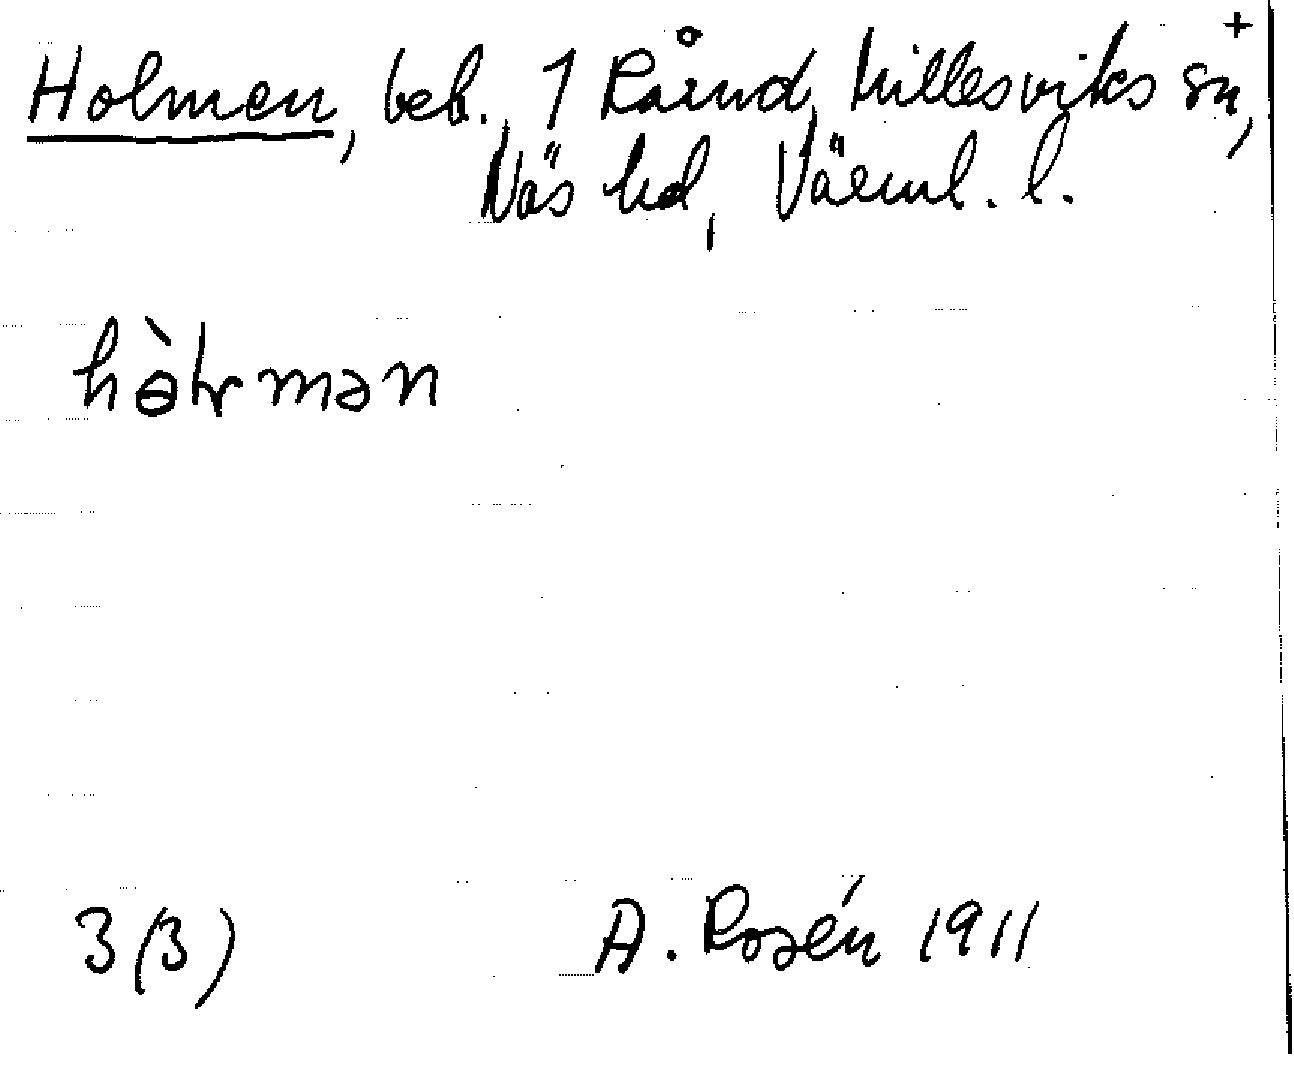 Holmen, beb. 1 Råmd, Millesviks sn, +
Näs hd, Värml. l.
mən
3(3) A. Rosén 1911